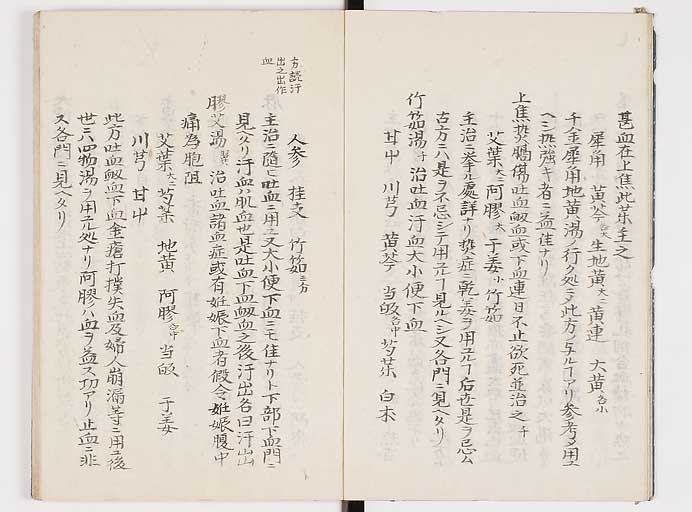 甚血在上焦此茱主之
犀角 黄芩各大 生地黄大二 黄連 大黄各小
千金犀角地黄湯ノ行ク処ニヲ此方ノ与ルヿアリ参考〆用ユ
ヘシ熱強キ者ニ益佳ナリ
上焦熱膈傷吐血衂血或下血連日不止欲死並治之 千
艾葉大二 阿膠大 干姜小 竹筎
主治ニ挙ル處詳ナリ熱症ニ乾姜ヲ用ユルヿ后世是ヲ忌ム
古方ニハ是ヲ不忌シテ用ユルヿ見ルヘシ又各門ニ見ヘタリ
竹筎湯 千 治吐血汗血大小便下血
甘中 川芎 黄芩 当皈各中 芍茱 白朮
人参 桂支 竹筎三分
主治ニ随ヒ吐血ニ用ユ又大小便下血ニモ佳ナリト下部下血門ニ
見ヘタリ汗血ハ肌血也是吐血下血衂血之後汗出各曰汗出
方読汗
出之出作
血
膠艾湯 治吐血諸血症或有妊娠下血者假令妊娠腹中
痛為胞阻
艾葉大二 芍茱 地黄 阿膠各中 当皈 干姜
川芎 甘中
此方吐血衂血下血金瘡打撲失血及婦人崩漏等ニ用ユ後
世ニハ四物湯ヲ用ユル処ナリ阿膠ハ血ヲ益ス功アリ止血ニ非
ス各門ニ見ヘタリ